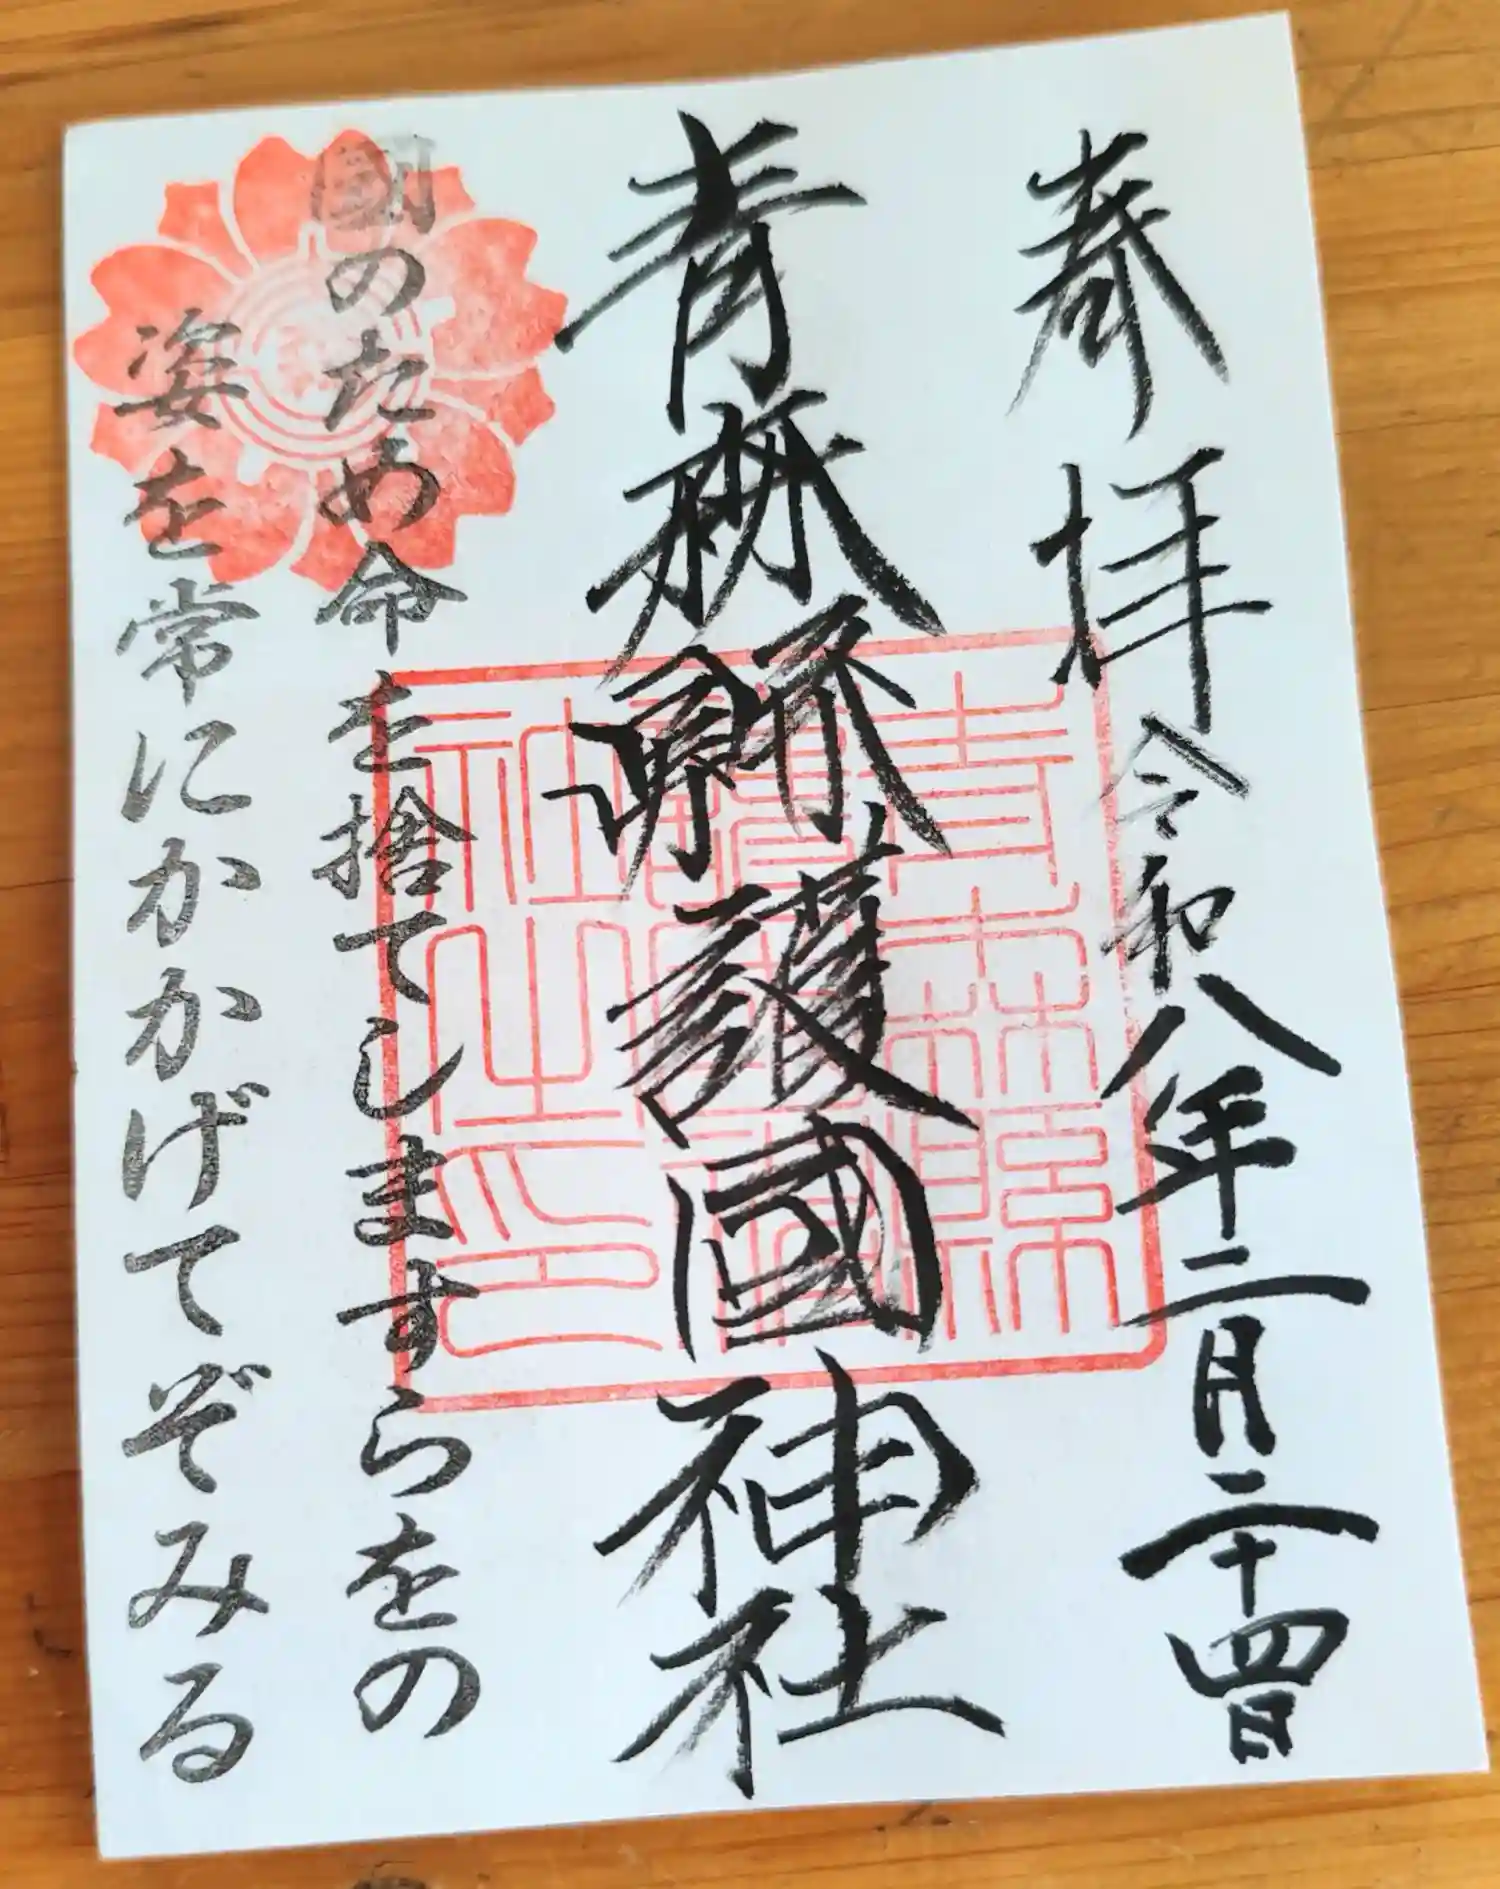 奉拝 令和八年二月二十四日
青森縣護國神社
國のため命を捨てしますらをの
姿を常にかかげてぞみる
青森縣護國神社之印